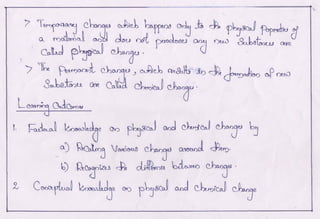 > Temporary changes which happens only to the physical Properties of
a material and does not produces any new Substances are
Called physical changes.
> The Permanent changes, which results in the formation of new
Substances are Called chemical changes.
Learning Outcome
1. Factual knowledge on physical and chemical changes by
a) Recalling Various changes around them.
b) Recognizes the difference between changes.
2 Conceptual knowledge on physical and chemical change